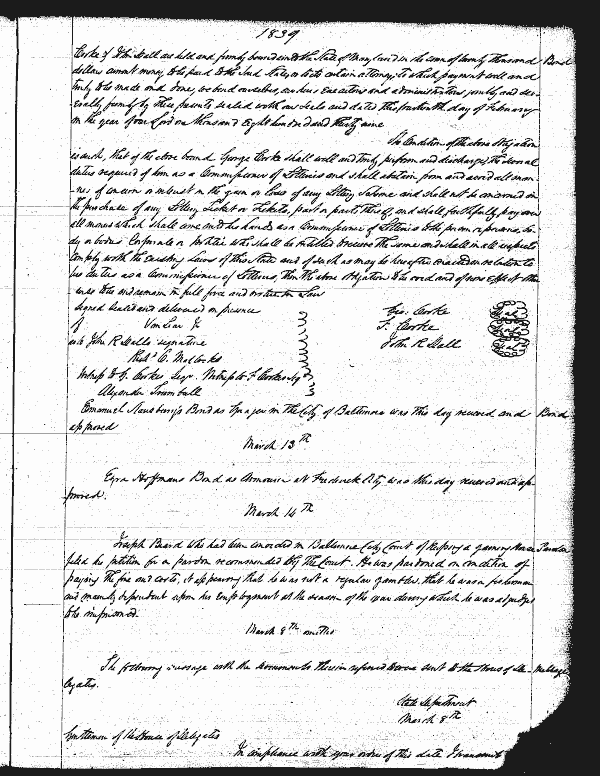 1839
Cooke & John R Hall are held and firmly bound unto the State of Maryland in the sum of twenty thousand Bond
dollars current money, to be paid to the said State, or its certain attorney; to which payment well and
truly to be made and done, we bind ourselves, our heirs executors and administrators jointly and sev-
erally firmly by these presents sealed with our seals and dated this fourteenth day of February
in the year of our Lord one thousand Eight hundred and thirty nine
The Condition of the above obligation
is such, that if the above bound George Cooke shall well and truly perform and discharge the several
duties required of him as a Commissioner of Lotteries and shall abstain from and avoid all man-
ner of concern or interest in the gain or loss of any Lottery Scheme and shall not be concerned in
the purchase of any Lottery Ticket or Tickets, part or parts thereof, and shall faithfully pay over
all monies which shall come into his hands as a Commissioner of Lotteries to the person or persons, bo-
dy or bodies Corporate or Politic who shall be entitled to receive the same and shall in all respects
comply with the existing Laws of this State and of such as may be hereafter enacted in relation to
his duties as a Commissioner of Lotteries, then the above obligation to be void and of none effect other
wise to be and remain in full force and virtue in Law
Signed Sealed and delivered in presence Geo. Cooke Seal
of T. Cooke Seal
John R Hall Seal
as to John R Halls signature
Witness to G. Cooke, Sign. Witness to T Cookes Sig
Alexander Turnbull
Emanuel Bond as in the City of Baltimore was this day received and Bond
approved
March 13th
Ezra Hoffmans Bond as Armourer at Frederick City was this day received and ap-
proved.
March 14th
Joseph Beard who had been convicted in Baltimore City Court of keeping a gaming House Pardon
filed his petition for a pardon recommended by the Court. He was pardoned on condition of
paying the fine and costs; it appearing that he was not a regular gambler, that he was a fisherman
and mainly dependent upon his employment at the season of the year during which he was adjudged
to be imprisoned.
March 8th omitted
The following message with the documents therein referred to were sent to the House of De- Message
legates.
State Department
March 8th
Gentlemen of the House of Delegates
In compliance with your order of this date I transmit